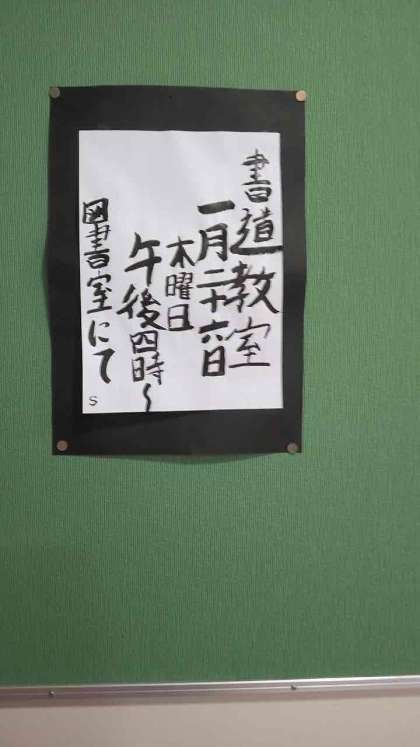 書道教室
一月二十六日
木曜日
午後四時〜
図書室にて
S